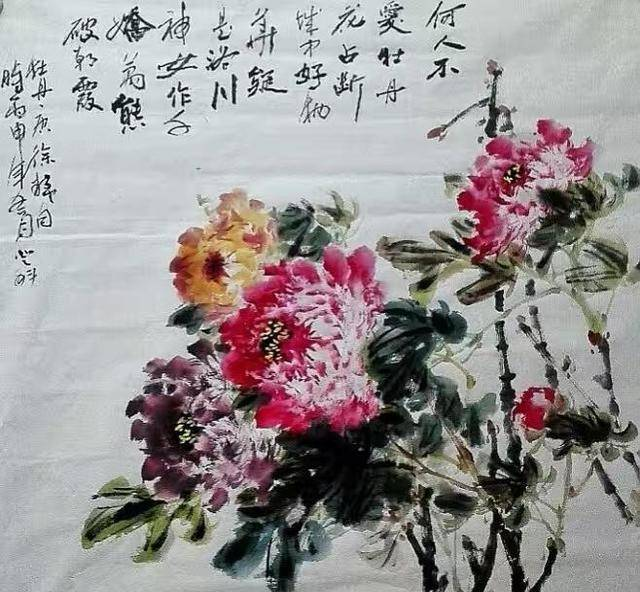 何人不
愛牡丹
花占断
城中好物
華疑
是洛川
神女作千
嬌萬態
破朝霞
牡丹唐徐凝
時丙申年